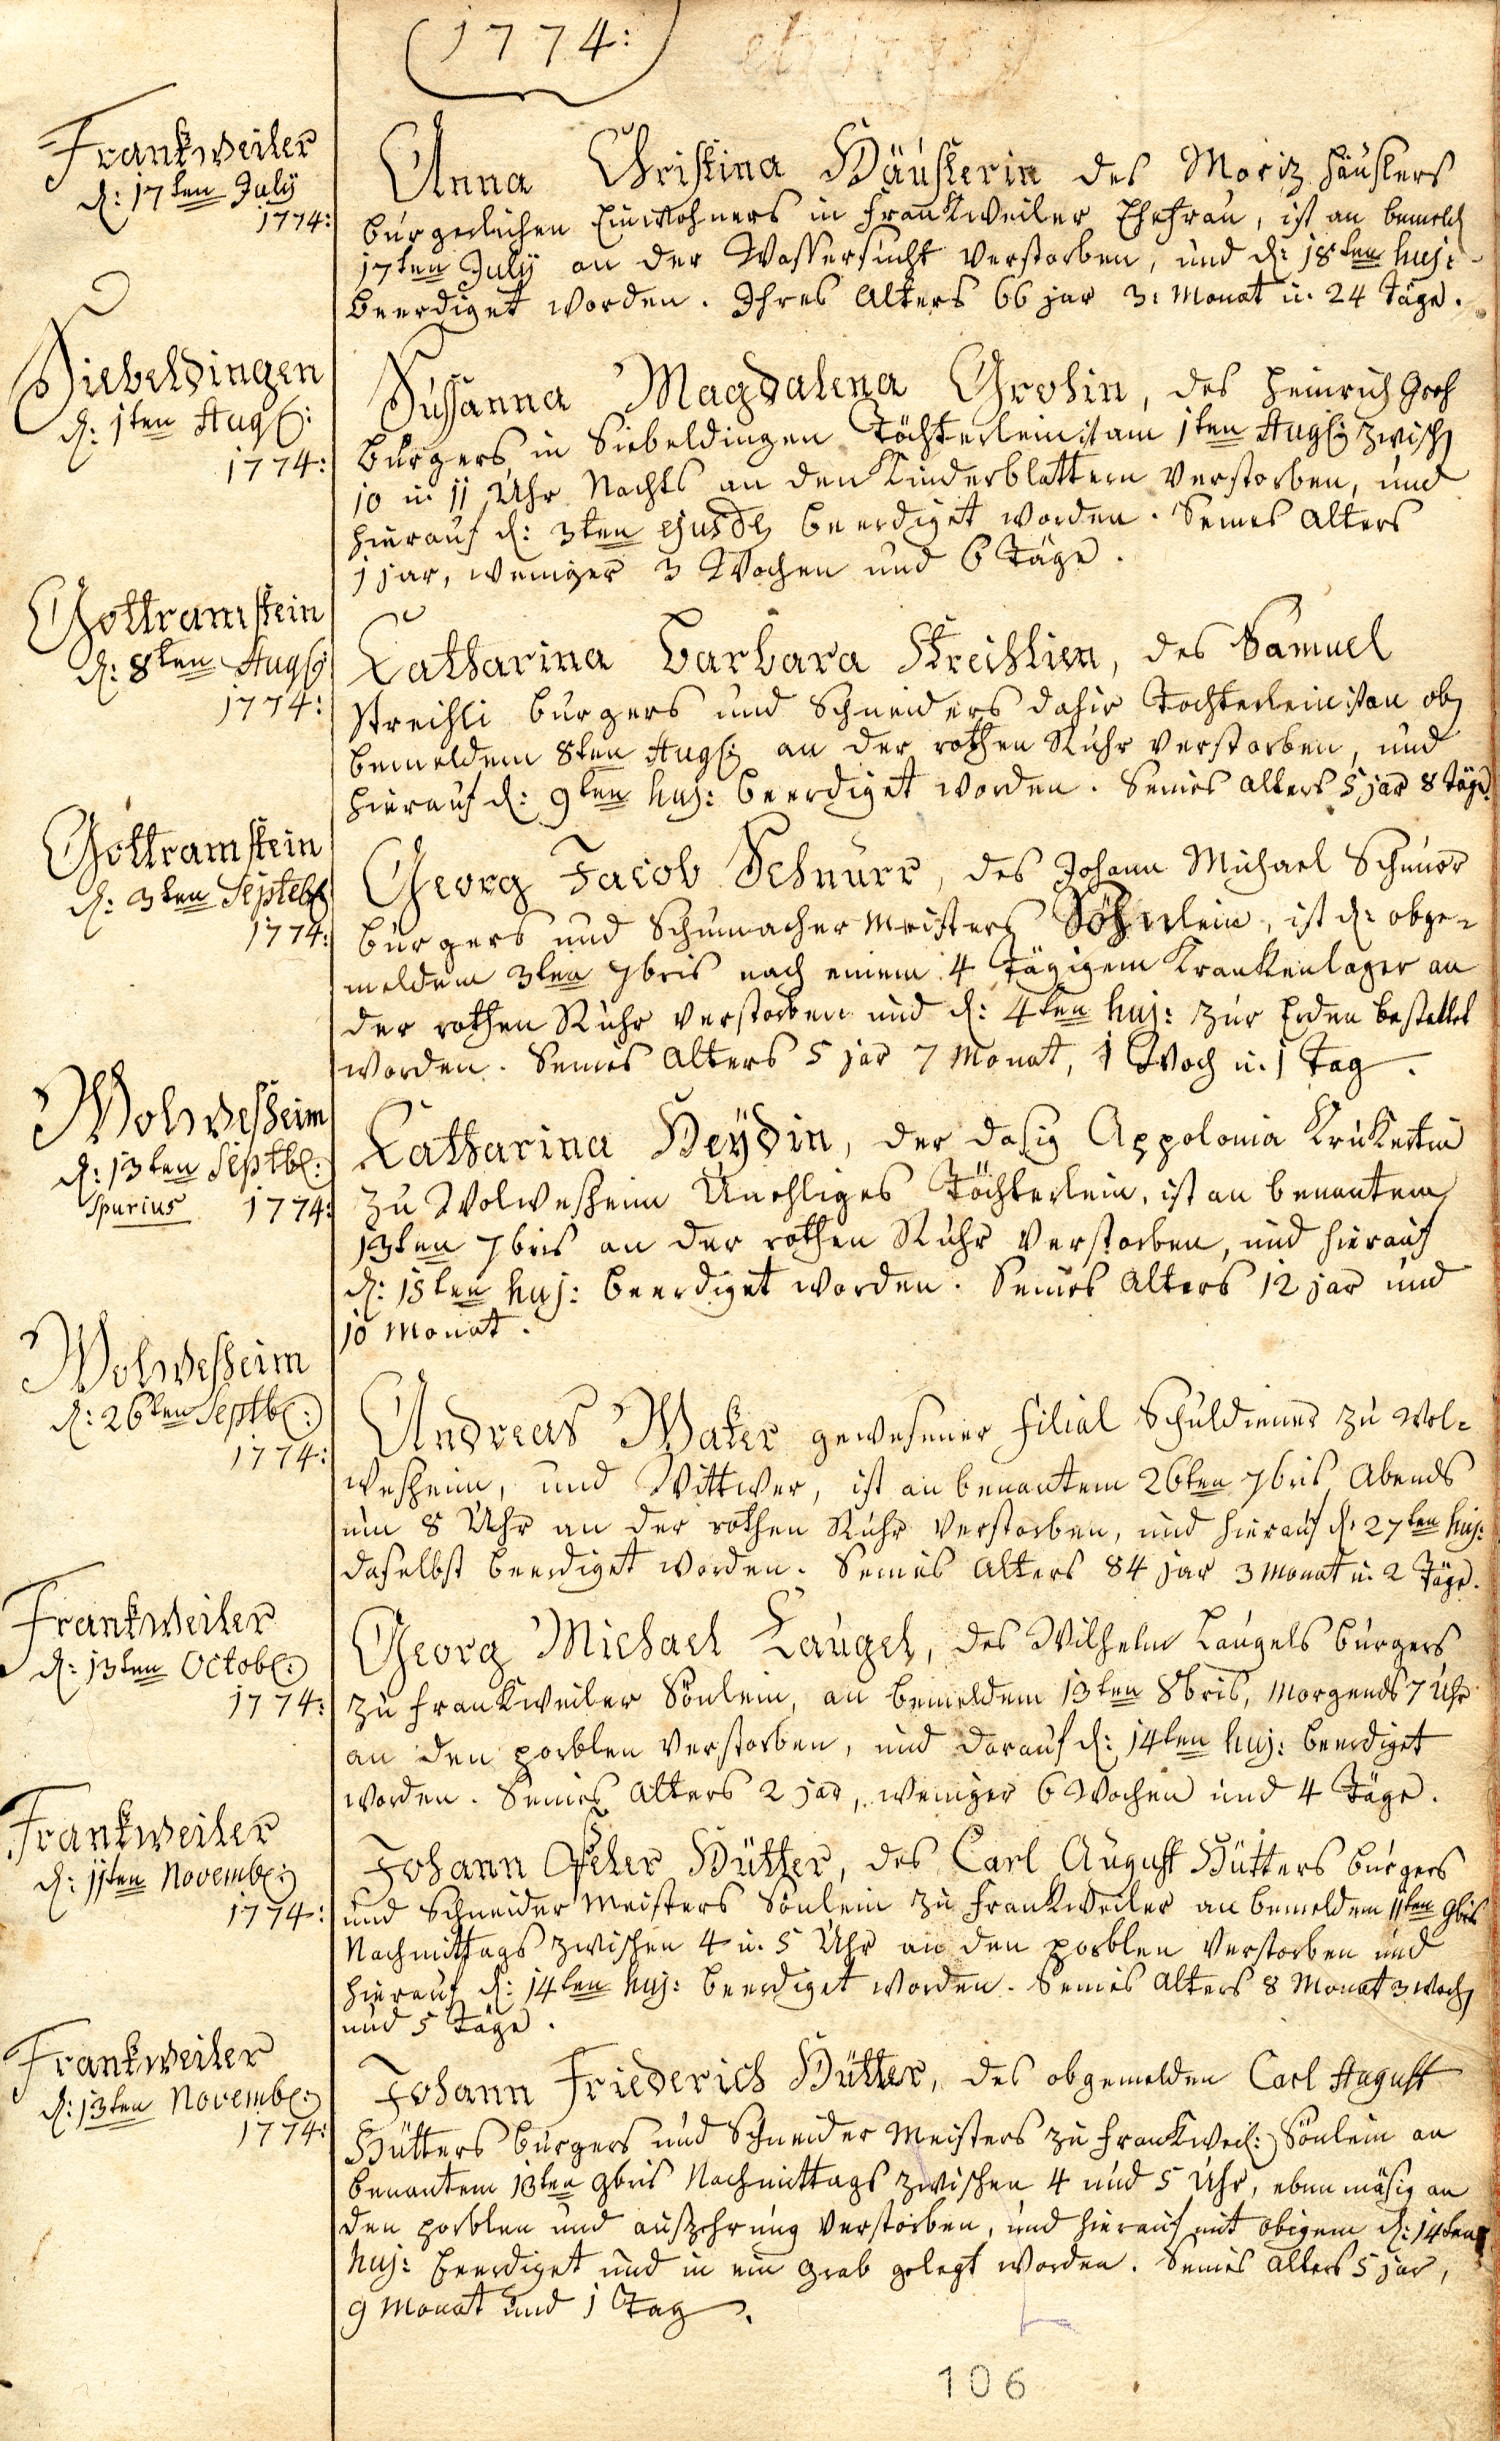 1774:
Frankweiler
d: 17ten July
1774:
Anna Christina Häuslerin des Moriz Häuslers
burgerlichen Einwohners in Franckweiler Ehefrau, ist an bemeld
17ten July an der Wassersucht verstorben, und d: 18ten huj:
beerdiget worden. Ihres Alters 66 jar 3: Monat u. 24 täge.
Siebeldingen
d: 1ten Aug:
1774:
Susanna Magdalena Grohin, des Heinrich Groh
burgers in Siebeldingen Töchterlein ist am 1ten Aug zwisch
10 u: 11 Uhr Nachts an den Kinderblattern verstorben, und
hierauf d: 3ten ejusd beerdiget worden. Seines Alters
1 jar, weniger 3 Wochen und 6 täge.
Gottramstein
d: 8ten Aug
1774:
Catharina Barbara Streihlien, des Samuel
Streihli burgers und Schneiders dahir Tochterlein ist an ob
bemeldem 8ten Aug an der rothen Ruhr verstorben, und
hierauf d: 9ten huj: beerdiget worden. Seines Alters 5 jar 8 täge.
Gottramstein
d: 3ten Septeb
1774:
Georg Jacob Schnurr, des Johann Michael Schnurr
burgers und Schumacher Meisters Söhnlein, ist d: obge=
meldem 3ten 7bris nach einem 4 tägigem Krankenlager an
der rothen Ruhr verstorben und d: 4ten huj: zur Erden bestattet
worden. Seines Alters 5 jar 7 Monat, 1 Woch u. 1 Tag.
Wolwesheim
d: 13ten Septb:
Spurius 1774:
Catharina Heÿdin, der dasig Appolonia Kruckertin
zu Wolwesheim Unehliges Töchterlein, ist an benantem
13ten 7bris an der rothen Ruhr verstorben, und hierauf
d: 15ten huj: beerdiget worden. Seines Alters 12 jar und
10 Monat.
Wolwesheim
d: 26ten Septb:
1774:
Andreas Maker gewesener Filial Schuldiener zu Wol=
wesheim, und Wittwer, ist an benantem 26ten 7bris Abends
um 8 Uhr an der rothen Ruhr verstorben, und hierauf d: 27ten huj:
daselbst beerdiget worden. Seines Alters 84 jar 3 Monat u: 2 Täge.
Frankweiler
d: 13ten Octob:
1774:
Georg Michael Laugel, des Wilhelm Laugels burgers
zu Franckweiler Sönlein, an bemeldem 13ten 8bris, Morgends 7 Uhr
an den porblen verstorben, und darauf d: 14ten huj: beerdiget
worden. Seines Alters 2 jar, weniger 6 Wochen und 4 Täge.
Frankweiler
d: 11ten Novemb:
1774:
Johann Peter Hütter, des Carl August Hütters burgers
und Schneider Meisters Sönlein zu Franckweiler an bemeldem 11ten 9bris
Nachmittags zwischen 4 u. 5 Uhr an den porblen verstorben und
hierauf d: 14ten huj: beerdiget worden. Seines Alters 8 Monat 3 Woch
und 5 täge.
Frankweiler
d: 13ten Novemb:
1774:
Johann Friederich Hütter, des obgemelden Carl August
Hütters burgers und Schneider Meisters zu Franckweil: Sönlein an
benantem 13ten 9bris Nachmittags zwischen 4 und 5 Uhr, ebenmäsig an
den porblen und auszehrung verstorben, und hierauf mit obigem d: 14ten
huj: beerdiget und in ein grab gelegt worden. Seines Alters 5 jar,
9 Monat und 1 Tag.
106